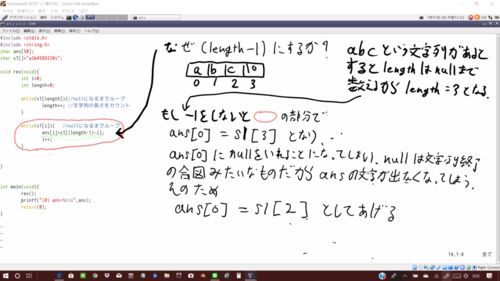 アプリケーション
#include <stdio.h>
#include <string.h>
char ans[50];
void rev(void){
int i=0;
int length=0;
while(s1[length]){//nullになるまでループ
length++; //文字列の長さをカウント
}
while(s1[i]){ //nullになるまでループ
ans[i]=s1[(length-1)-i];
i++;
}
}
int main(void){
rev();
printf("(0) ans=%s\n",ans);
return(0);
}
なぜ(length-1)にするか?
a b c \0
0 1 2 3
abcという文字列があると
するとlengthはnullまで
数えるからlength=3となる。
もし-1をしないと の部分で
ans[0]=s1[3]となり
ans[0]にnullをいれることになってしまい、nullは文字列終了
の合図みたいなものだからansの文字が出なくなってしまう。
そのため
ans[0]=s1[2]としてあげる
14,1-8 全て
Right Control